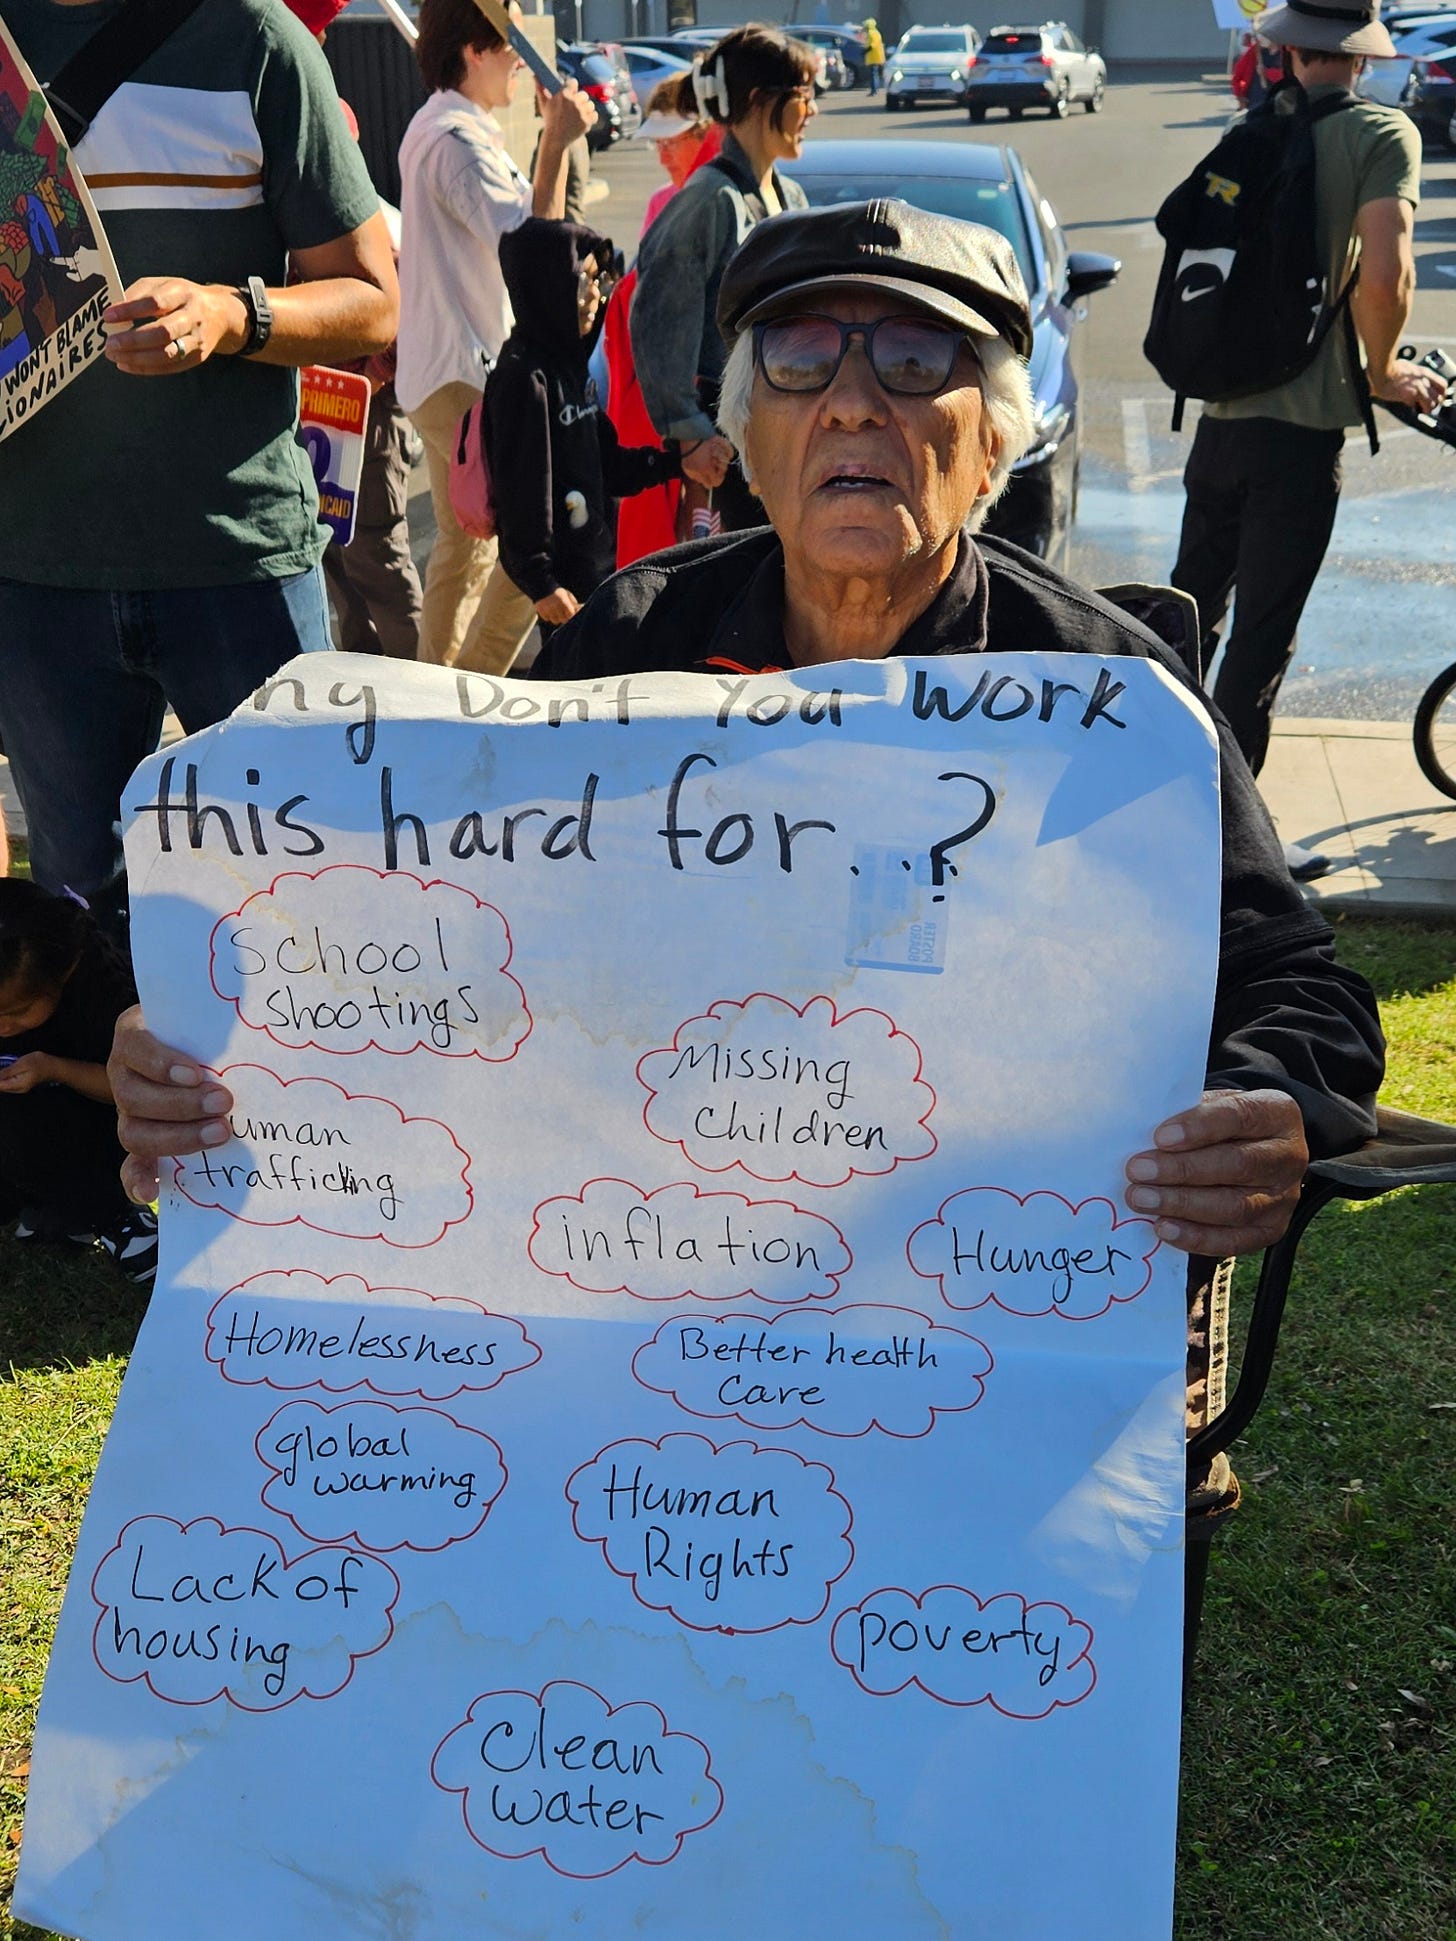 ny Don't You work
this hard for...?
School
shootings
Missing
Children
uman
trafficking
inflation
Hunger
Homelessness
Better health
care
global
warming
Human
Rights
Lack of
housing
poverty
Clean
water
BOARD
POSTER
WON'T BLAME
IONAIRES
PRIMERO
ICAID
TR